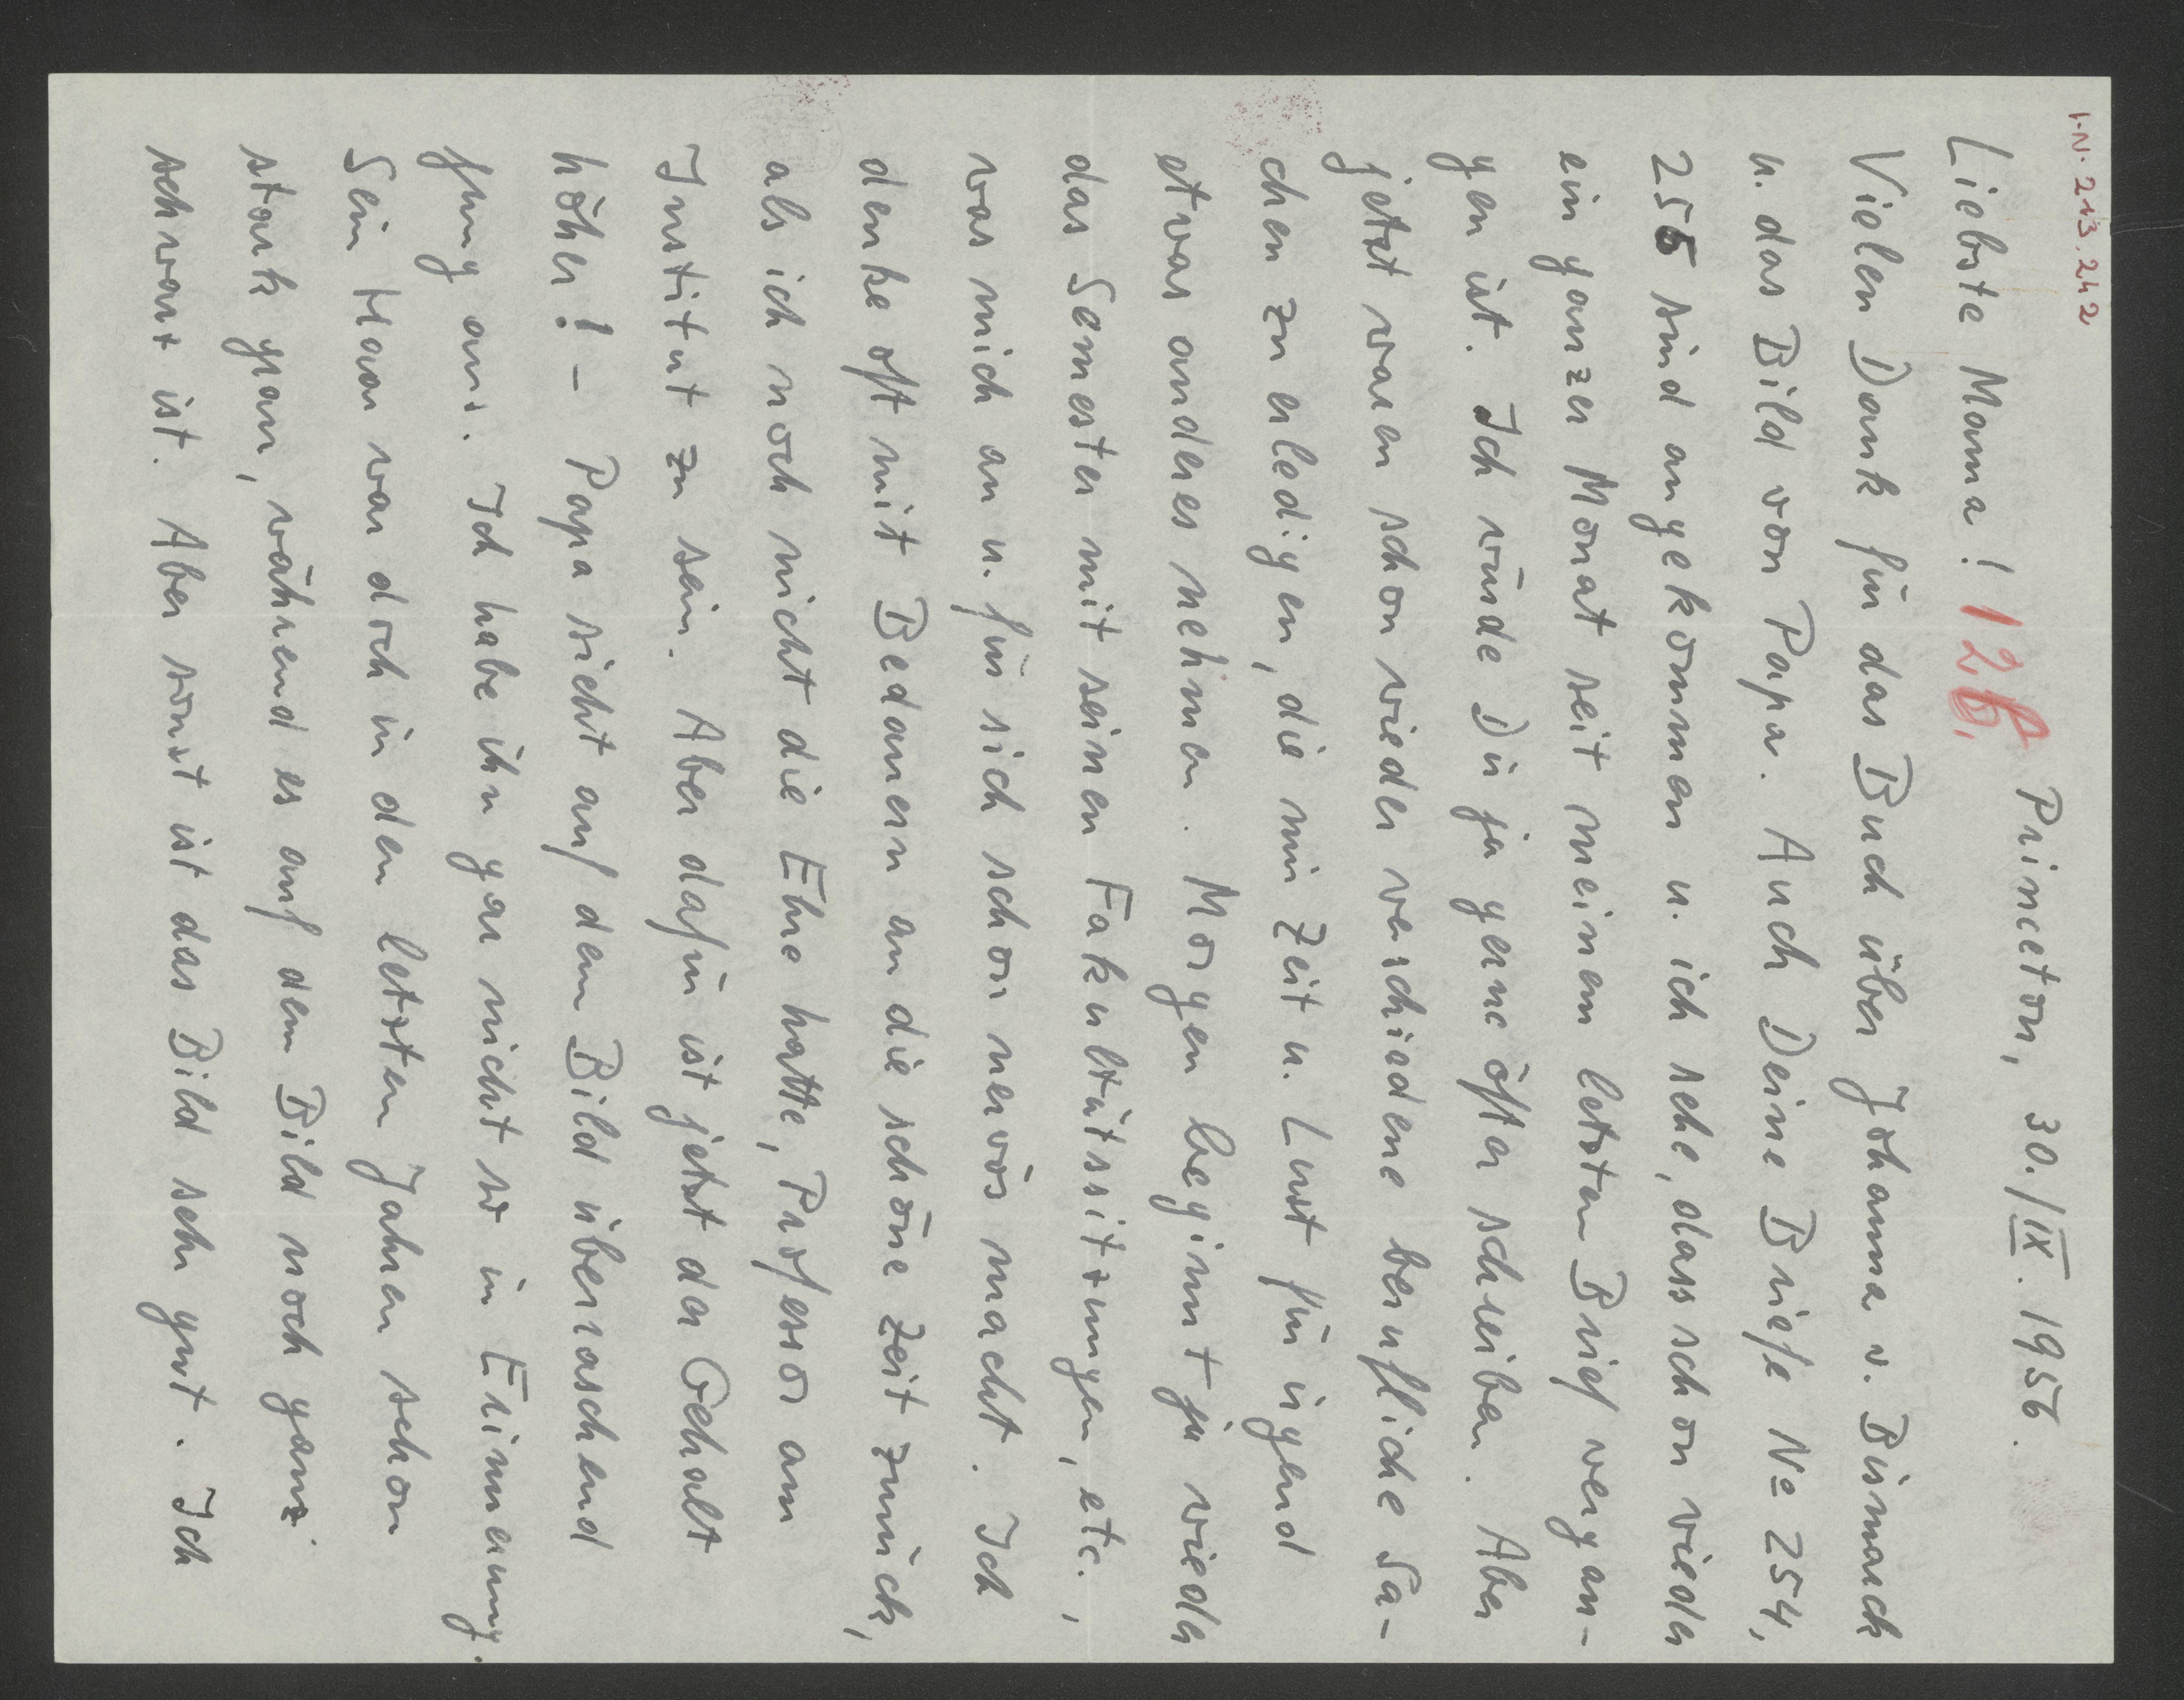 I.N. 213.242
Princeton, 30./IX. 1956.
Liebste Mama! 126.
Vielen Dank für das Buch über Johanna v. Bismarck
u. das Bild von Papa. Auch Deine Briefe № 254,
255 sind angekommen u. ich sehe, dass schon wieder
ein ganzer Monat seit meinem letzten Brief vergan-
gen ist. Ich würde Dir ja gerne öfter schreiben. Aber
jetzt waren schon wieder verschiedene berufliche Sa-
chen zu erledigen, die mir Zeit u. Lust für irgend
etwas anderes nehmen. Morgen beginnt ja wieder
das Semester mit seinen Fakultätssitzungen, etc.,
was mich an u. für sich schon nervös macht. Ich
denke oft mit Bedauern an die schöne Zeit zurück,
als ich noch nicht die Ehre hatte, Professor am
Institut zu sein. Aber dafür ist jetzt der Gehalt
höher! – Papa sieht auf dem Bild überraschend
jung aus. Ich habe ihn gar nicht so in Erinnerung.
Sein Haar war doch in den letzten Jahren schon
stark grau, während es auf dem Bild noch ganz
schwarz ist. Aber sonst ist das Bild sehr gut. Ich